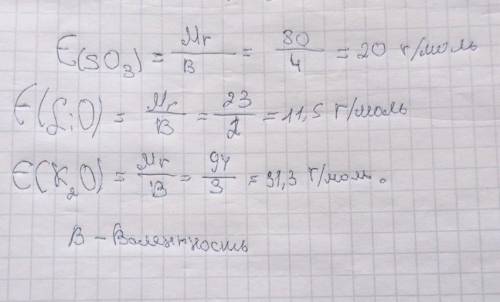 Є(SO₃) = Mr/B = 80/4 = 20 г/моль
Є(LiO) = Mr/B = 23/2 = 11,5 г/моль
Є(K₂O) = Mr/B = 94/3 = 31,3 г/мол.
B – Валентность